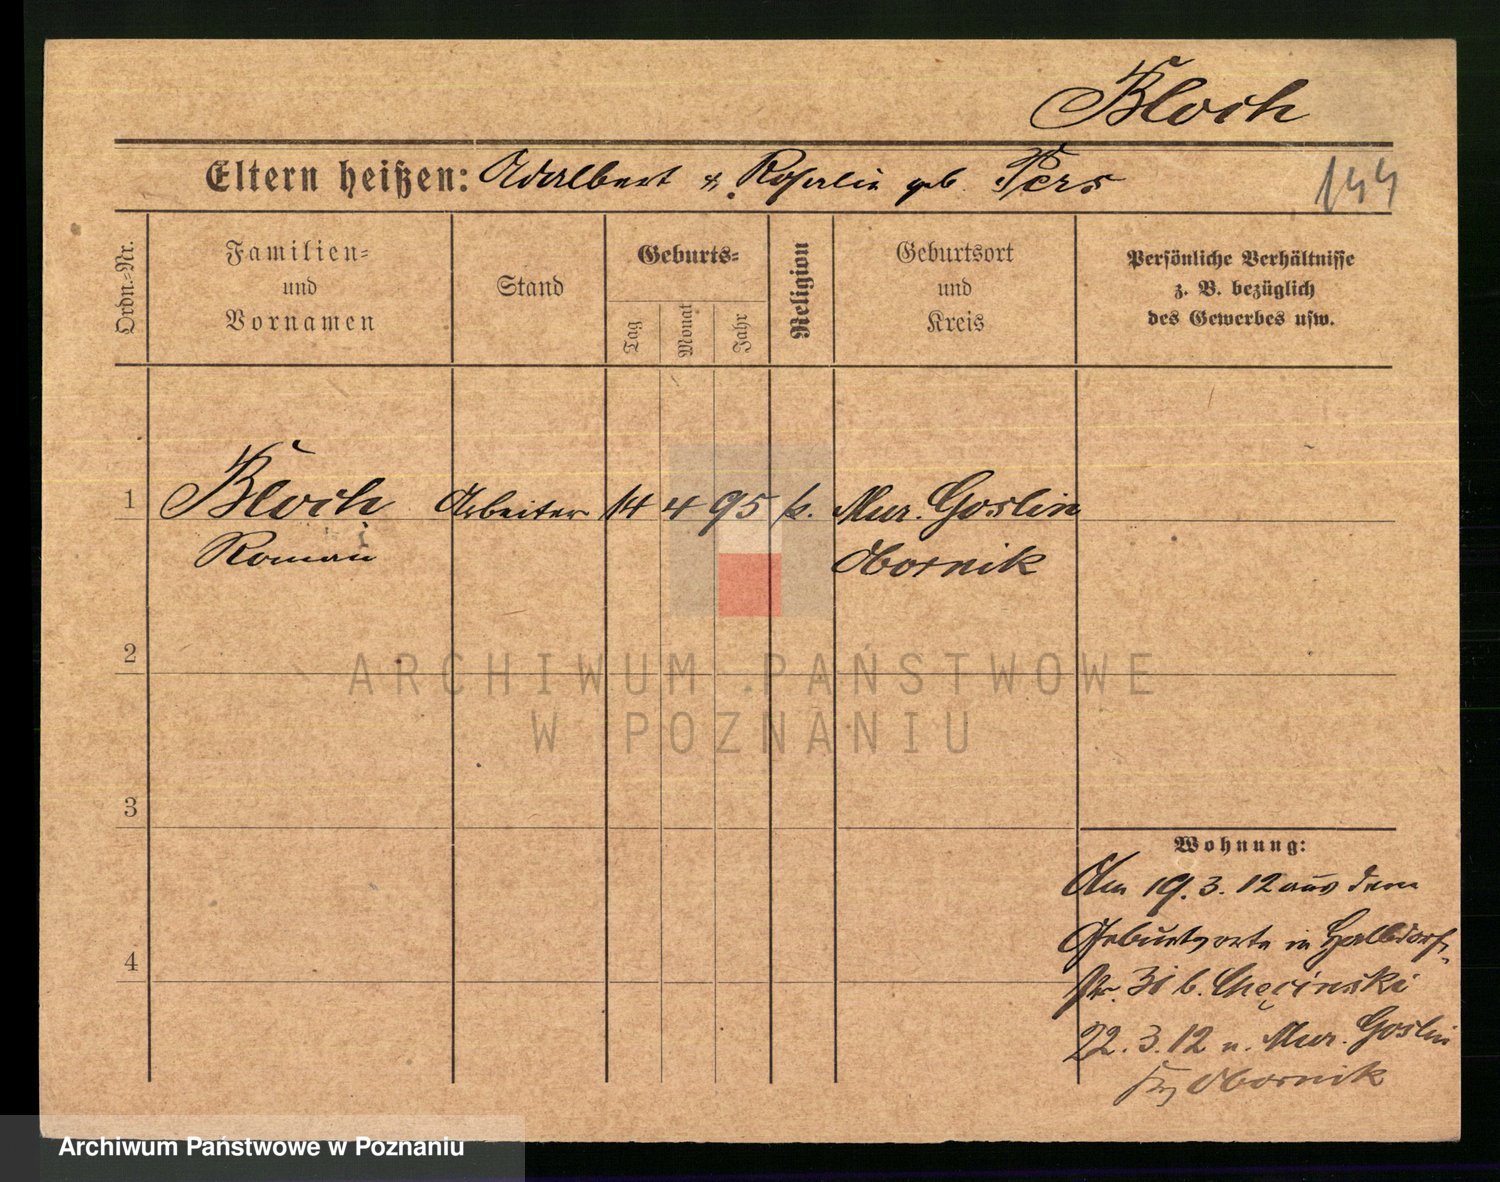 Bloch
Eltern heißen: Adalbert & Rosalie geb. Pers
144
Ordn.-Nr.
Familien-
und
Vornamen
Stand
Geburts-
Tag
Monat
Jahr
Religion
Geburtsort
und
Kreis
Persönliche Verhältnisse
z. B. bezüglich
des Gewerbes usw.
1
Bloch Arbeiter 14 4 95 k. Mur. Goslin
Roman Obornik
2
ARCHIWUM PAŃSTWOWE
W POZNANIU
3
4
Wohnung:
Am 19. 3. 12 aus dem
Geburtsorte in Halbdorf-
str. 31 b. Chęcinski
22. 3. 12 n. Mur. Goslin
Obornik
Archiwum Państwowe w Poznaniu